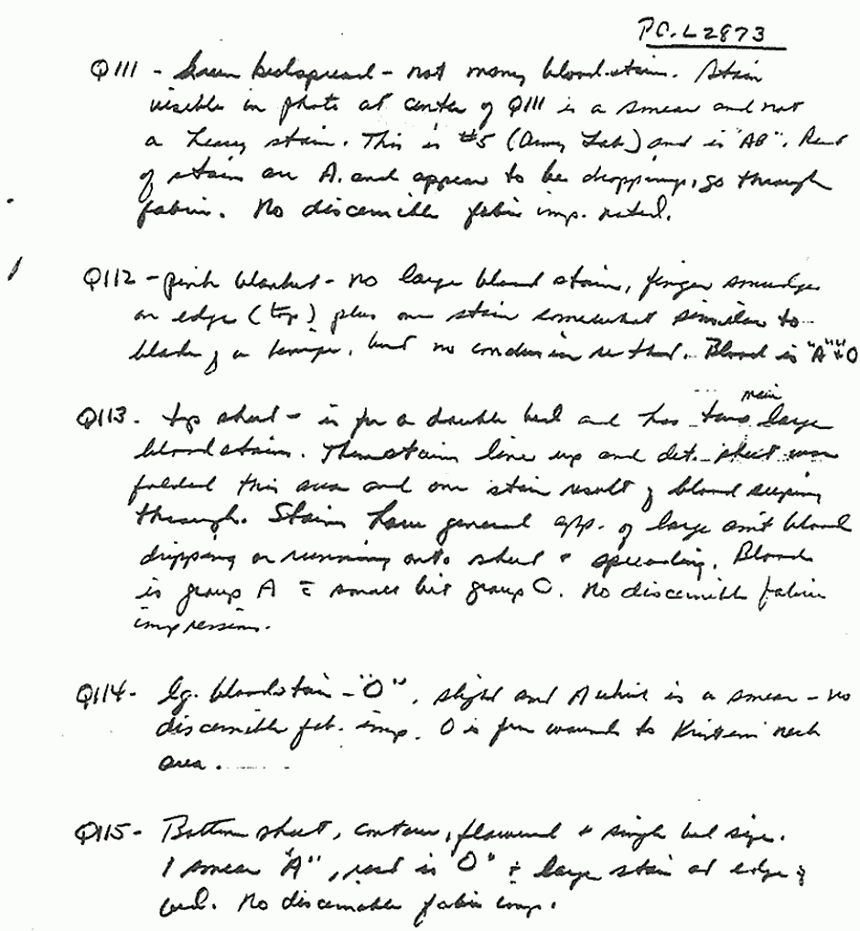 PC-L2873
Q111 - Green bedspread - not many blood stain. Stain
visible in photo at center of Q111 is a smear and not
a heavy stain. This is #5 (Army Lab) and is "AB". Rest
of stain are A. and appear to be droppings, go through
fabric. No discernible fabric imp. noted.
Q112 - pink blanket - no large blood stain, finger smudges
on edge (top) plus one stain somewhat similar to
blade of a knife, but no conclusion re that. Blood is "A" + O
Q113. top sheet - is for a double bed and has two main large
bloodstain. These stain line up and det. sheet was
folded this area and one stain result of blood seeping
through. Stains have general app. of large amt blood
dripping or running onto sheet + spreading. Blood
is group A c̄ small bit group O. No discernible fabric
impression.
Q114 - lg. bloodstain - "O", slight and A which is a smear - no
discernible fab. imp. O is from wounds to Kristen neck
area.
Q115 - Bottom sheet, contour, flowered + single bed size.
1 smear "A", rest is "O" + large stain at edge of
bed. No discernible fabric imp.